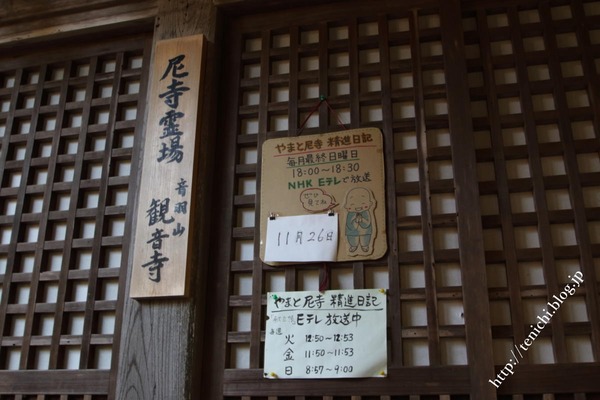 尼寺霊場
音羽山
観音寺
やまと尼寺 精進日記
毎月最終日曜日
18:00〜18:30
NHK Eテレで放送
11月26日
やまと尼寺 精進日記
Eテレ 放送中
毎週
火 12:50〜12:53
金 11:50〜11:53
日 8:57〜9:00
http://tenichi.blog.jp